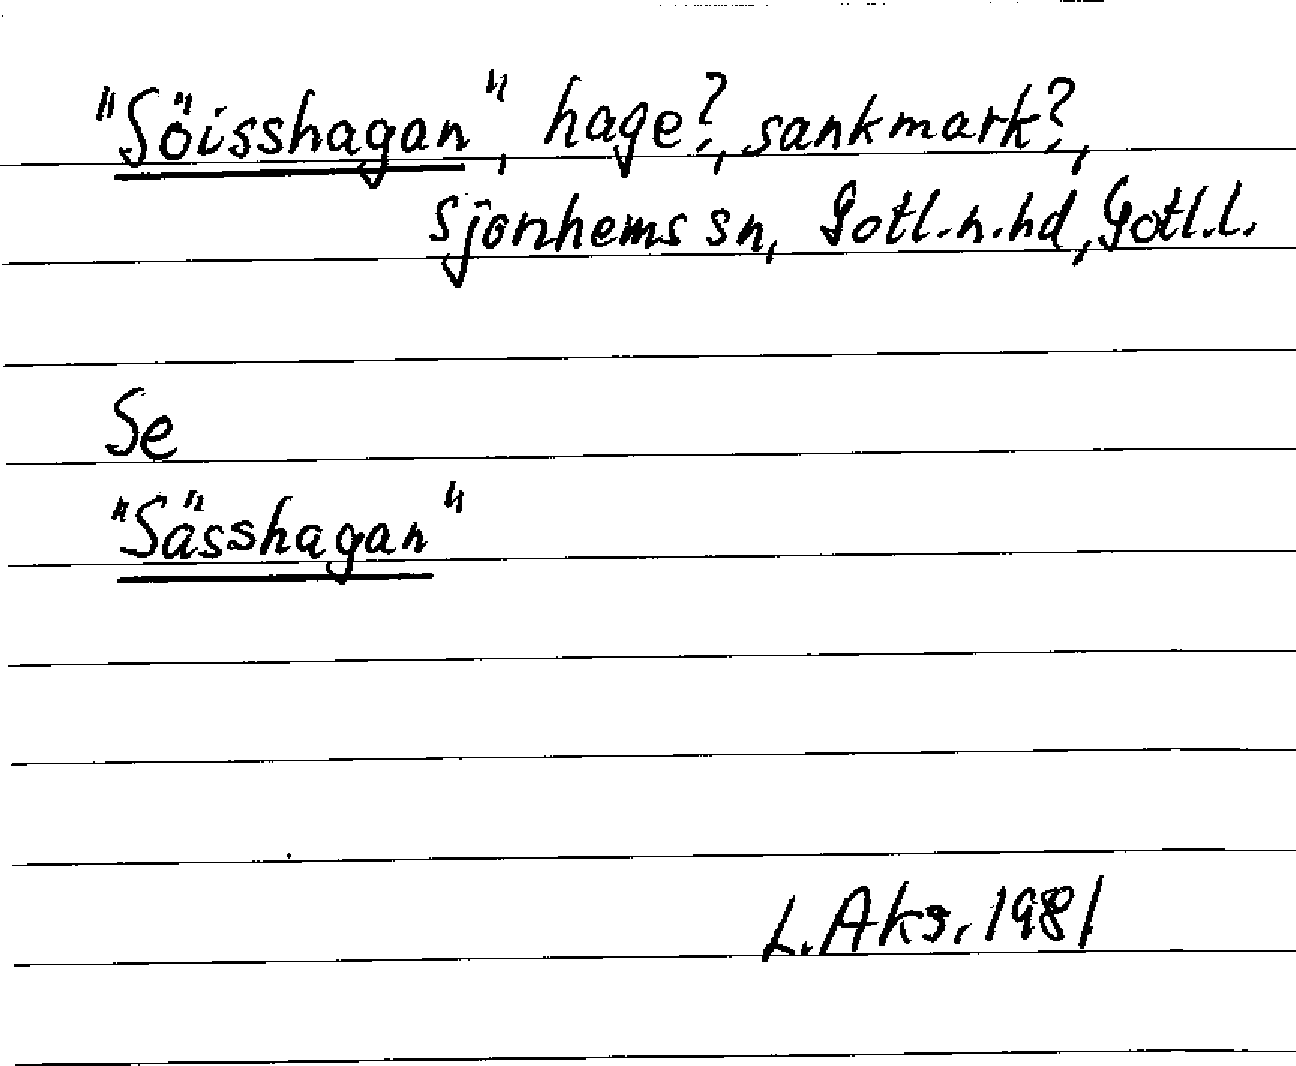 "Söisshagan", hage?, sankmark?,
Sjonhems sn, Gotl.n.hd, Gotl.l.
Se
"Sässhagan"
L. Aks. 1981